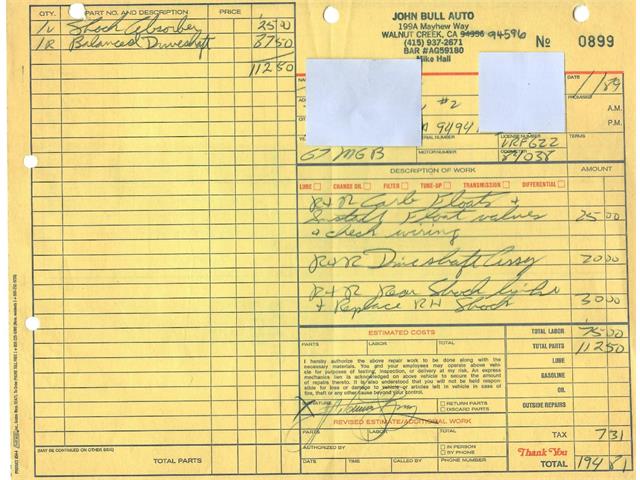 QTY. PART NO. AND DESCRIPTION PRICE
Shock Absorber 25 00
Balanced Driveshaft 87 50
112 50
JOHN BULL AUTO
199A Mayhew Way
WALNUT CREEK, CA 94596 94596
(415) 937-2671
BAR #AG59180
Mike Hall
No 0899
DATE
/ /89
PROMISED
A.M.
P.M.
#2
SERIAL NUMBER
LICENSE NUMBER TERMS
VRF622
67 MGB
MOTOR NUMBER
84038
DESCRIPTION OF WORK AMOUNT
LUBE CHANGE OIL FILTER TUNE-UP TRANSMISSION DIFFERENTIAL
R+R Carb Floats +
Install Float valves 25 00
+ check wiring
R+R Driveshaft Assy 20 00
R+R Rear Shock links
+ Replace RH Shock 30 00
ESTIMATED COSTS
PARTS LABOR TOTAL
I hereby authorize the above repair work to be done along with the
necessary materials. You and your employees may operate above vehi-
cle for purposes of testing, inspection, or delivery at my risk. An express
mechanics lien is acknowledged on above vehicle to secure the amount
of repairs thereto. It is also understood that you will not be held respon-
sible for loss or damage to vehicle or articles left in vehicle in case of
fire, theft or any other cause beyond your control.
X
SIGNATURE
RETURN PARTS
DISCARD PARTS
REVISED ESTIMATE/ADDITIONAL WORK
PARTS LABOR TOTAL
AUTHORIZED BY
IN PERSON
BY PHONE
DATE TIME CALLED BY PHONE NUMBER
TOTAL LABOR 75 00
TOTAL PARTS 112 50
LUBE
GASOLINE
OIL
OUTSIDE REPAIRS
TAX 7 31
Thank You
TOTAL 194 81
(MAY BE CONTINUED ON OTHER SIDE)
TOTAL PARTS